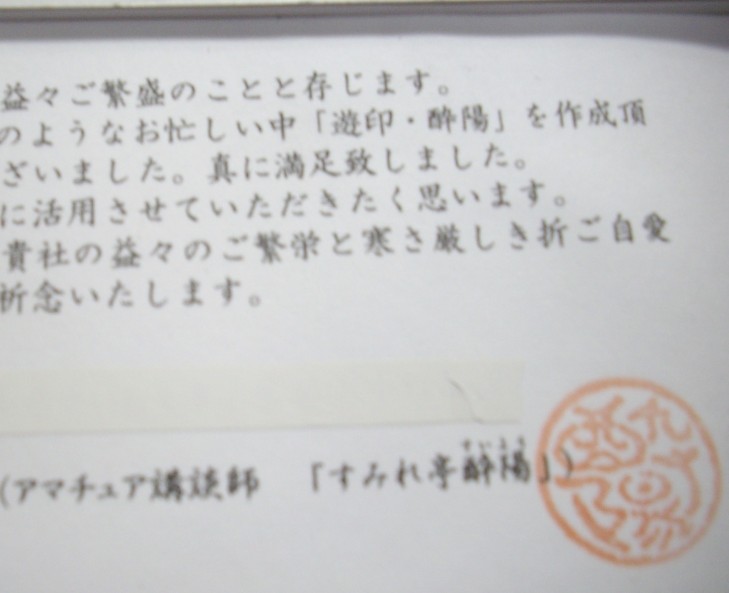 益々ご繁盛のことと存じます。
のようなお忙しい中「遊印・酔陽」を作成頂
ざいました。真に満足致しました。
に活用させていただきたく思います。
貴社の益々のご繁栄と寒さ厳しき折ご自愛
祈念いたします。
(アマチュア講談師 「すみれ亭酔陽」)